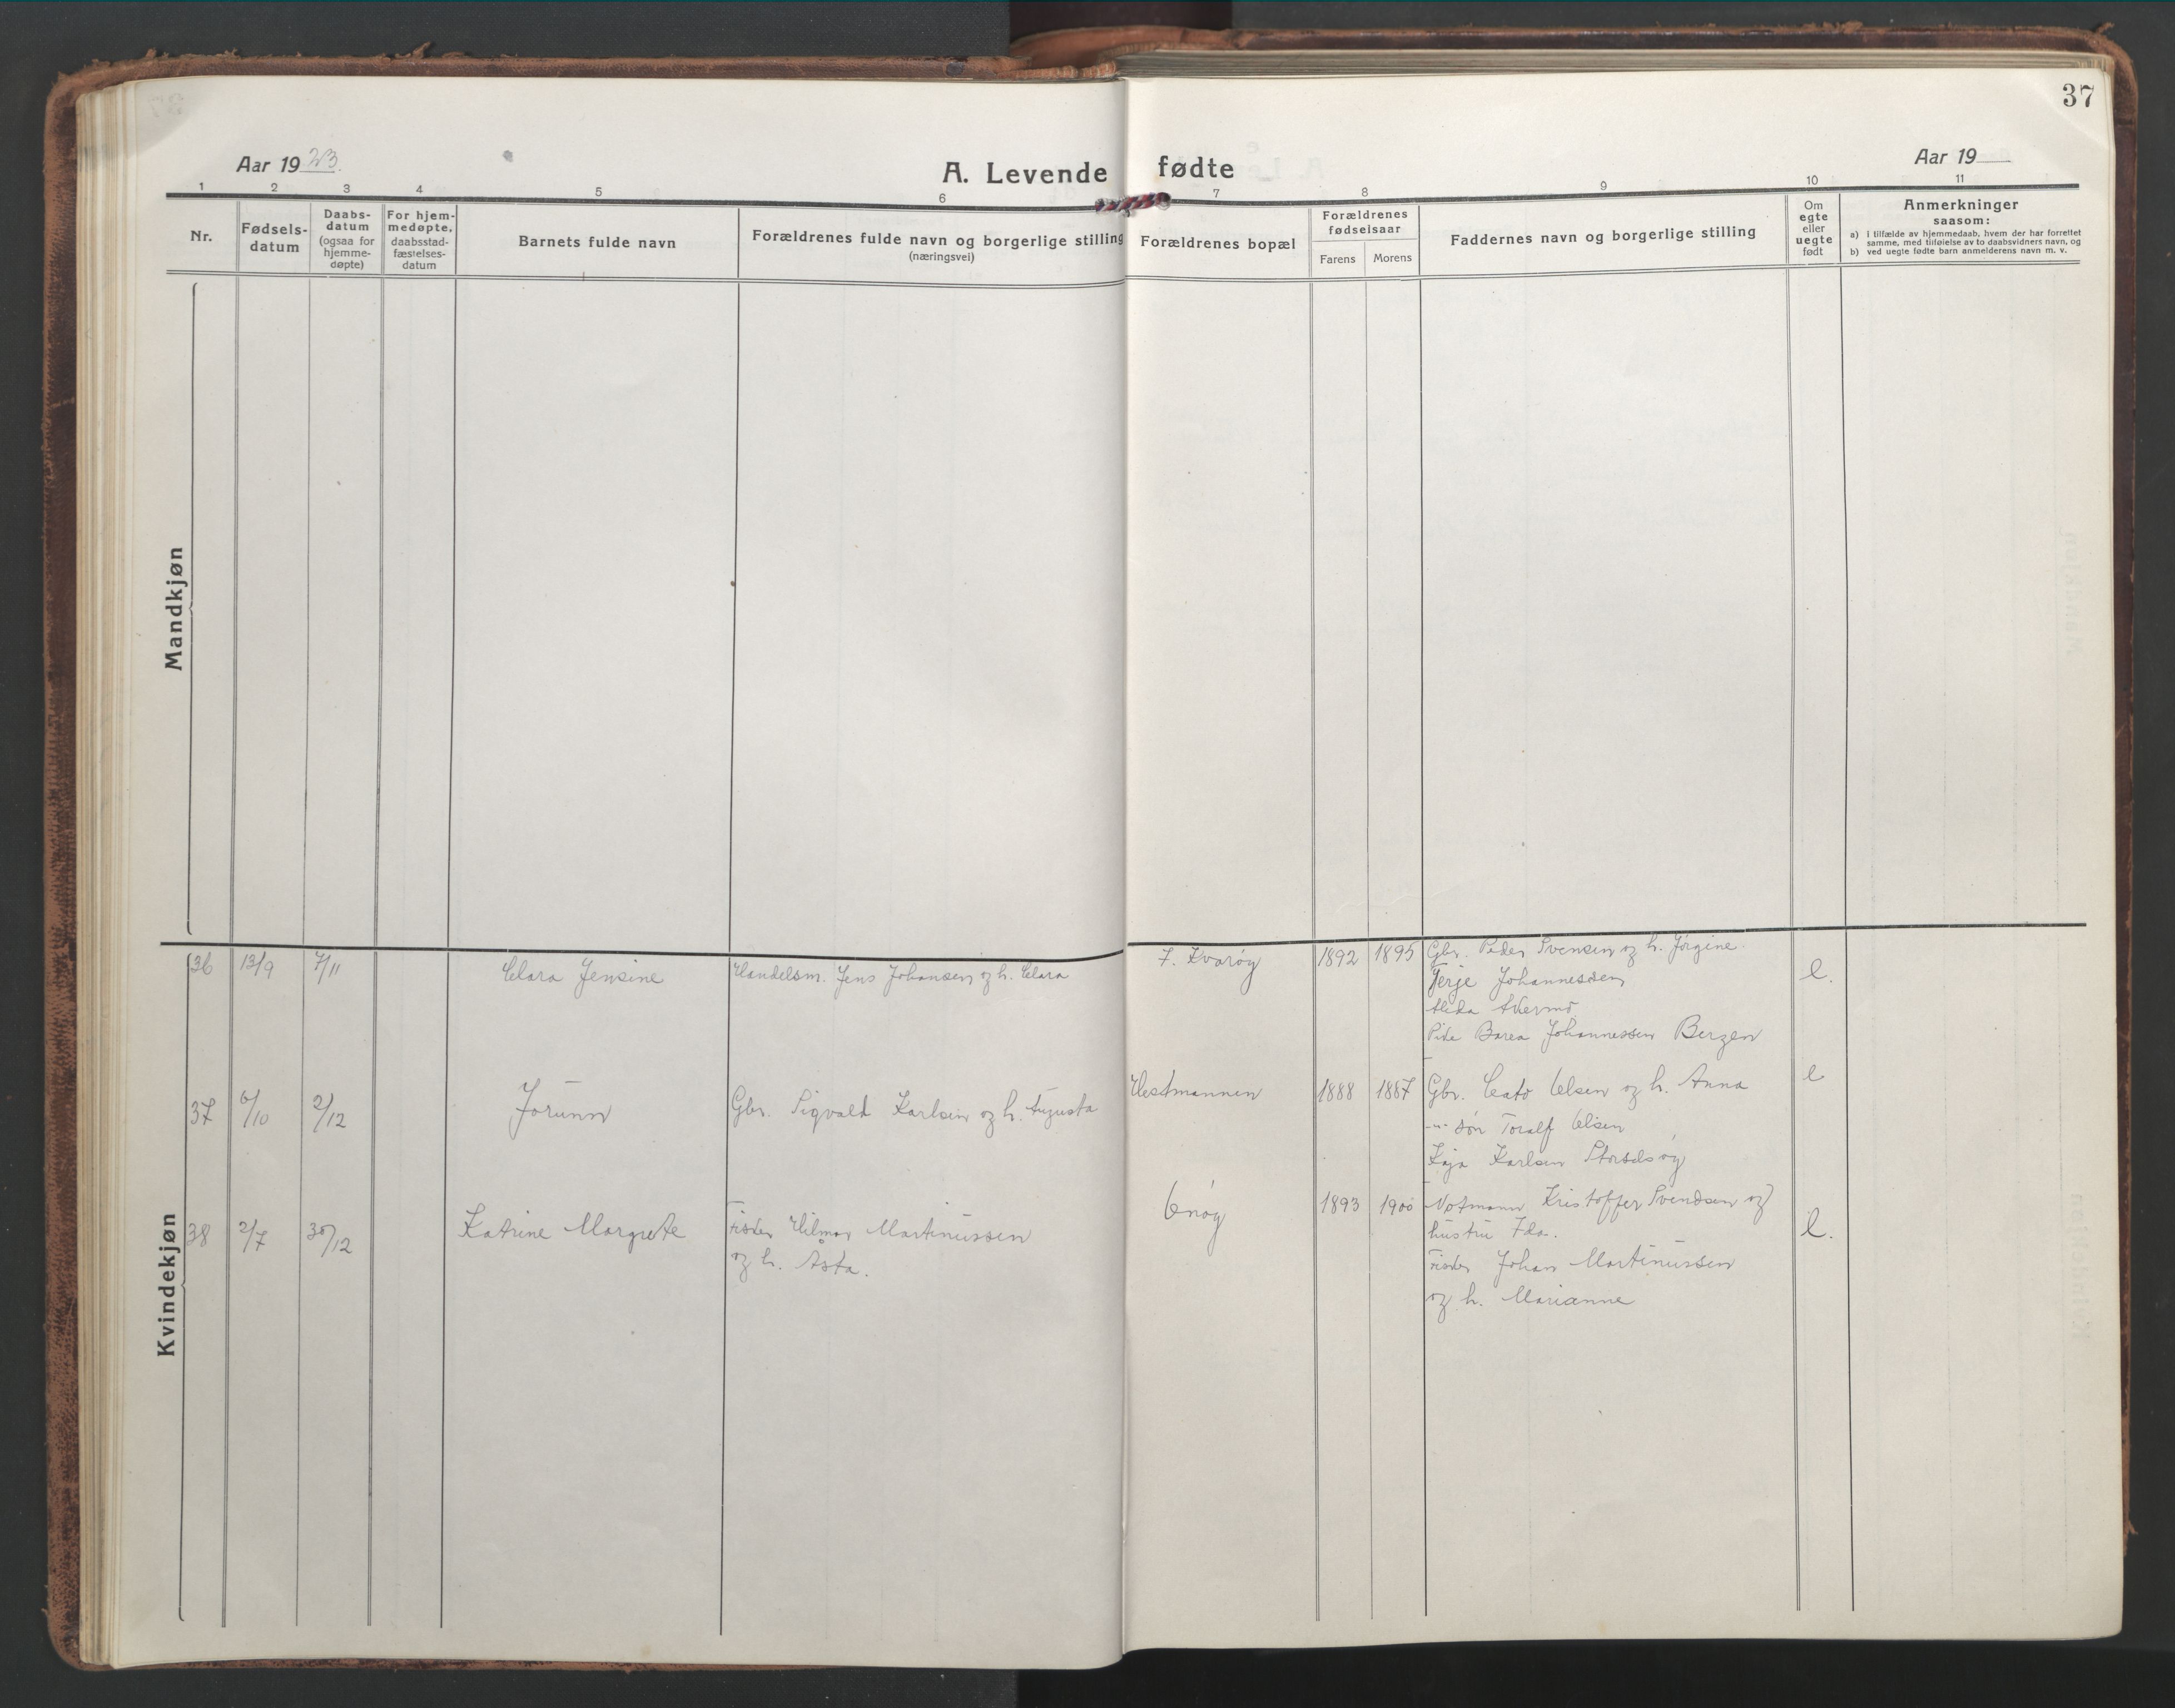 37
Aar 1923.
A. Levende fødte
Aar 19
1 2 3 4 5 6 7 8 9 10 11
Nr.
Fødsels-
datum
Daabs-
datum
(ogsaa for
hjemme-
døpte)
For hjem-
medøpte,
daabsstad-
fæstelses-
datum
Barnets fulde navn
Forældrenes fulde navn og borgerlige stilling
(næringsvei)
Forældrenes bopæl
Forældrenes
fødselsaar
Farens Morens
Faddernes navn og borgerlige stilling
Om
egte
eller
uegte
født
Anmerkninger
saasom:
a) i tilfælde av hjemmedaab, hvem der har forrettet
samme, med tilføielse av to daabsvidners navn, og
b) ved uegte fødte barn anmelderens navn m. v.
Mandkjøn
Kvindekjøn
36 13/9 7/11 Clara Jensine Handelsm. Jens Johansen og h. Clara
Kvarøy 1892 1895 Gbr. Peder Svensen og h. Jørgine. e.
Terje Johannessen
Johannessen Bergen
37 6/10 2/12 Jorunn Gbr. Sigvald Karlsen og h. Augusta
Hestmannen 1888 1887 Gbr. Cato Olsen og h. Anna e
-"- søn Toralf Olsen
Kaja Karlsen Storselsøy
38 2/7 30/12 Katrine Margrete Fisker Hilmar Martinussen
og h. Åsta.
Onøy 1893 1900 Notmann Kristoffer Svendsen og
hustru Ida. e.
Fisker Johan Martinussen
og h. Marianne